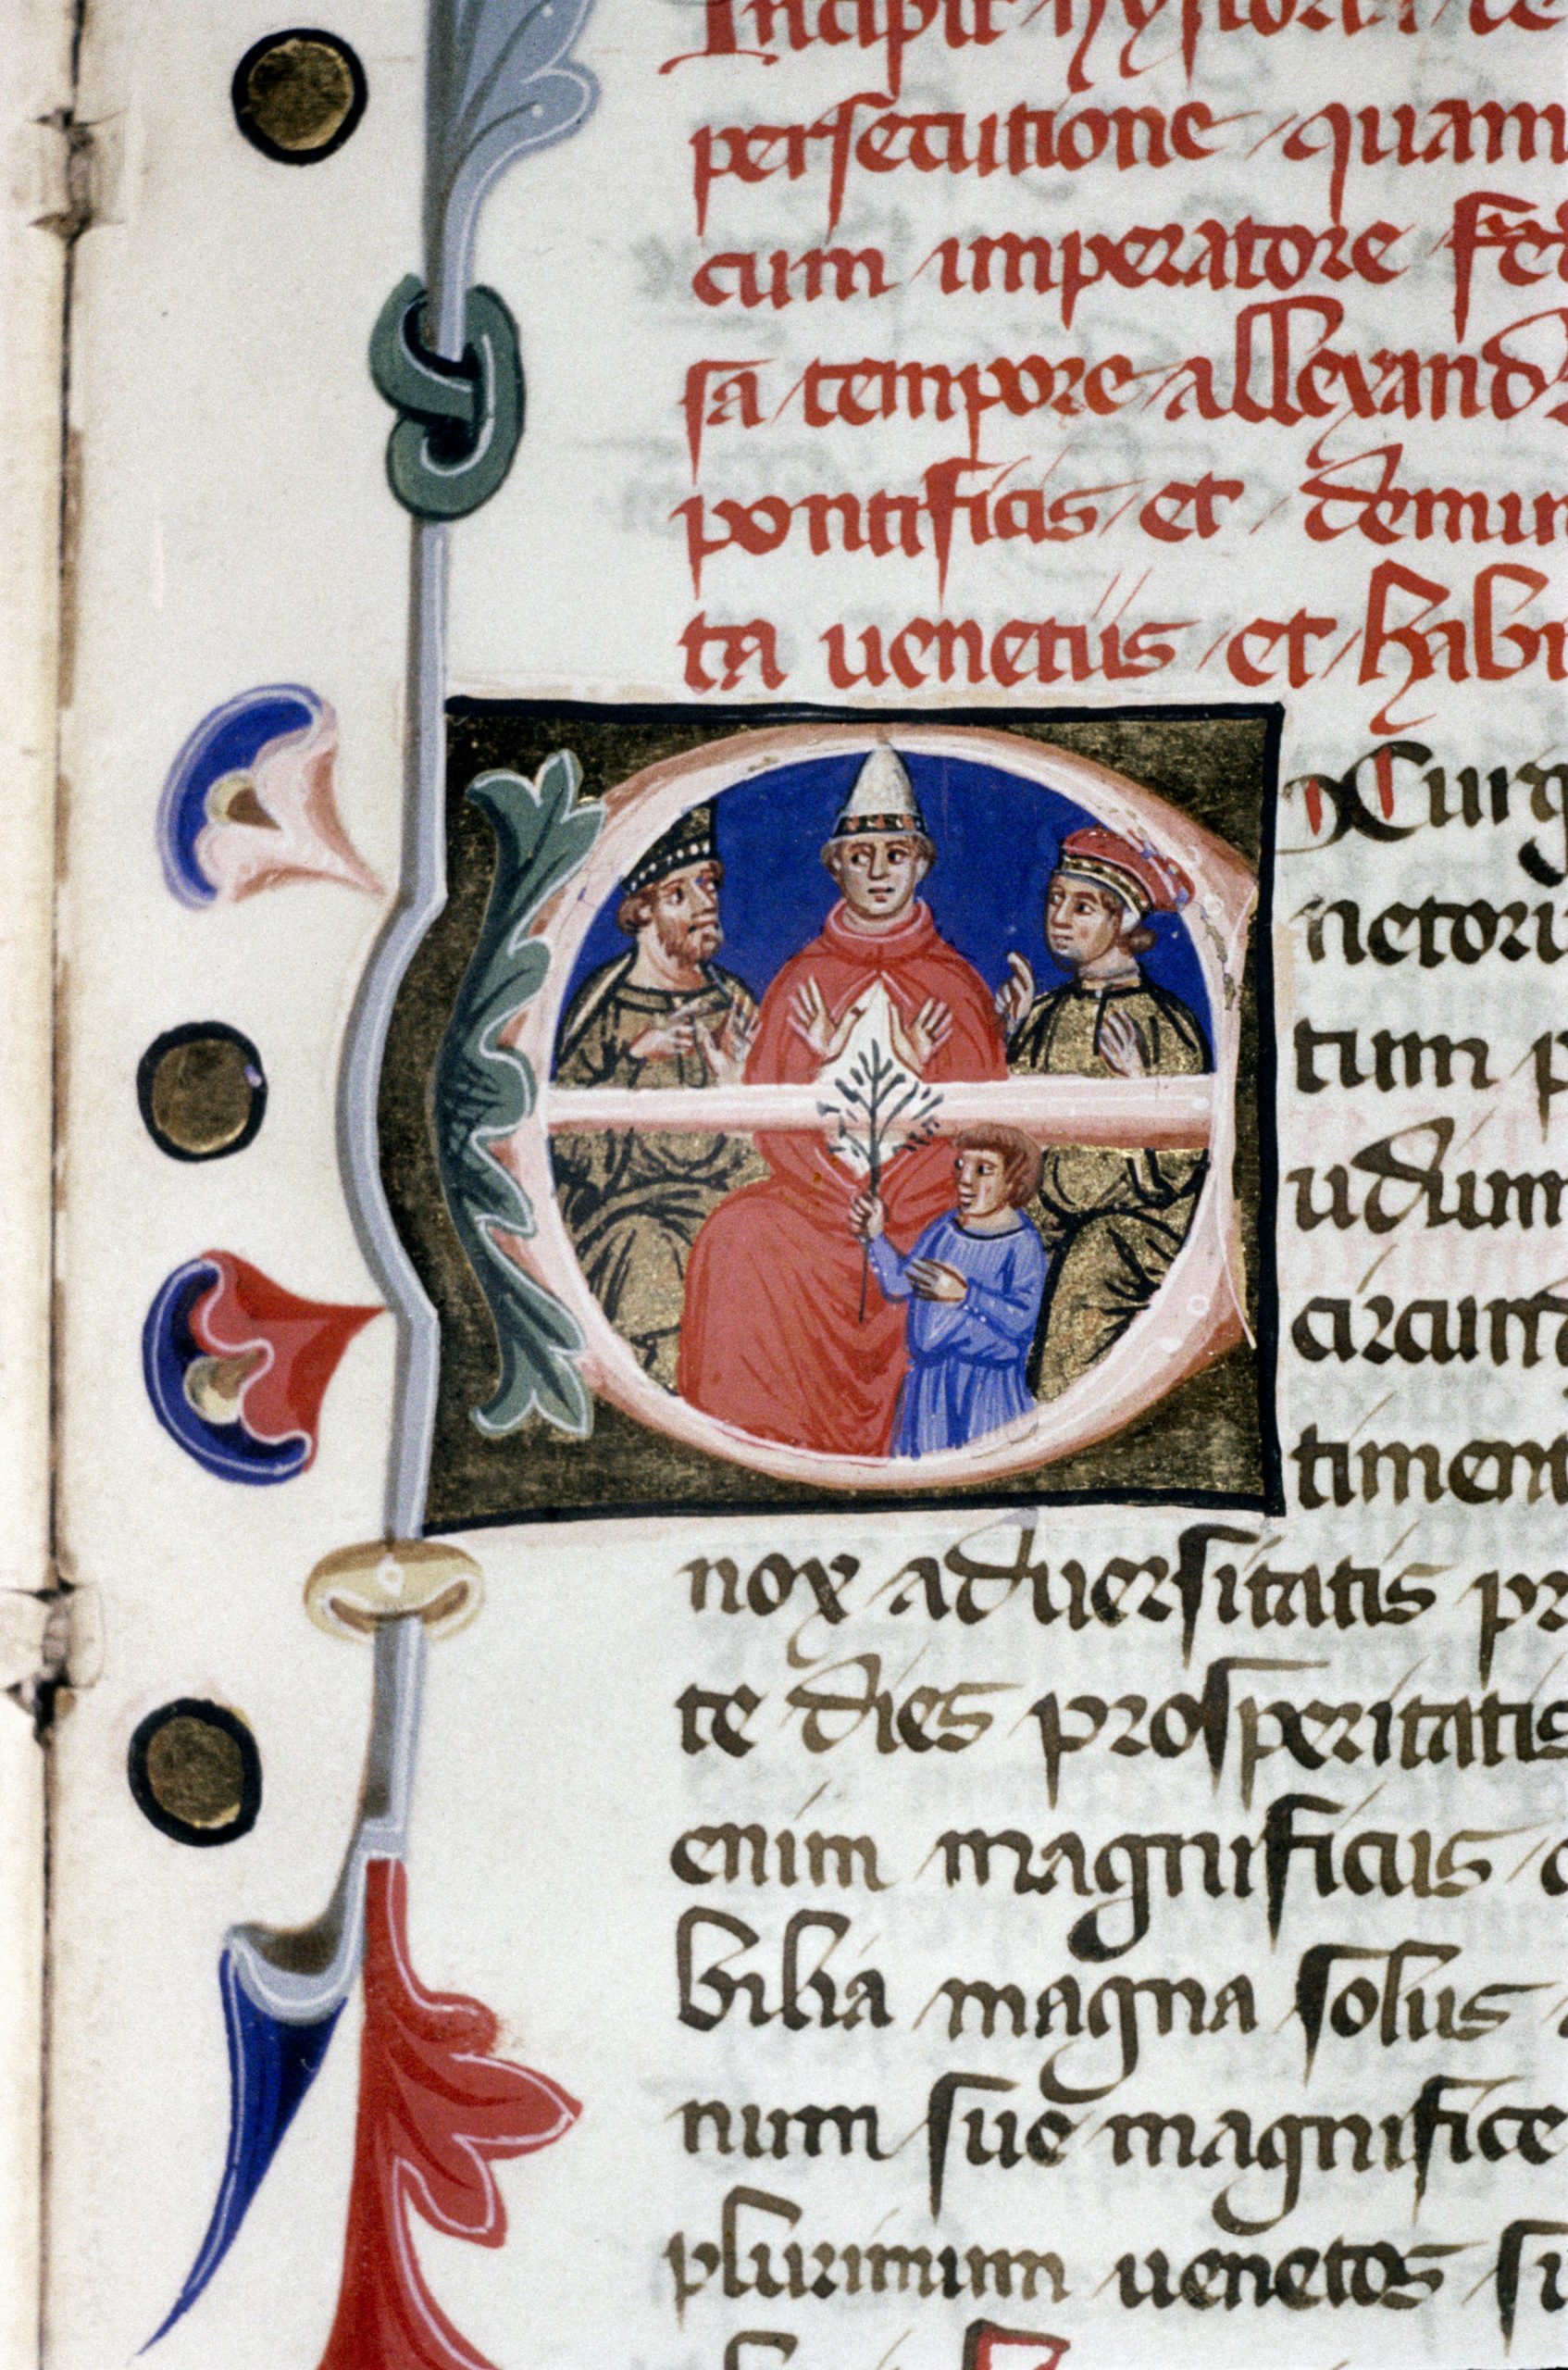 Incipit hystoria de
persecutione quam
cum imperatore fed
sa tempore allexandr
pontificis et demum
ta uenetiis et habi
Exurg
netoru
tum p
udum
circumd
timent
nox aduersitatis pr
te dies prosperitatis
enim magnificus
bilia magna solus
num sue magnifice
plurimum uenetos si